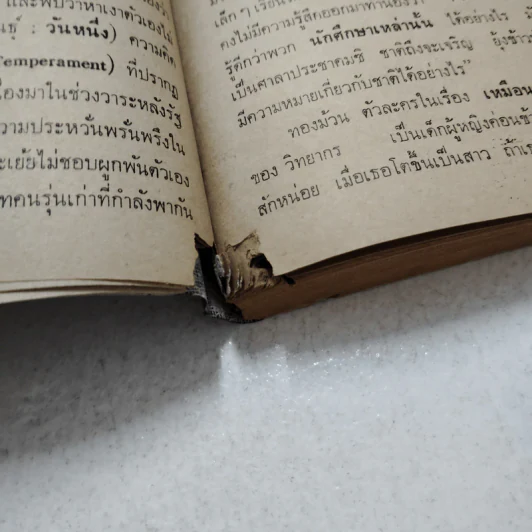 และพบว่าหาเงาตัวเองไม่
วันหนึ่ง) ความคิด
Temperament) ที่ปรากฏ
องมาในช่วงวาระหลังรัฐ
วามประหวั่นพรั่นพรึงใน
ะเย้ยไม่ชอบผูกพันตัวเอง
ทคนรุ่นเก่าที่กำลังพากัน
คงไม่มีความรู้สึกออกมาทำนอง
รู้ดีกว่าพวก นักศึกษาเหล่านั้น ได้อย่างไร
เป็นศาลาประชาคมซิ ชาติถึงจะเจริญ
มีความหมายเกี่ยวกับชาติได้อย่างไร"
ทองม้วน ตัวละครในเรื่อง เหมือน
ของ วิทยากร เป็นเด็กผู้หญิงค่อน
สักหน่อย เมื่อเธอโตขึ้นเป็นสาว